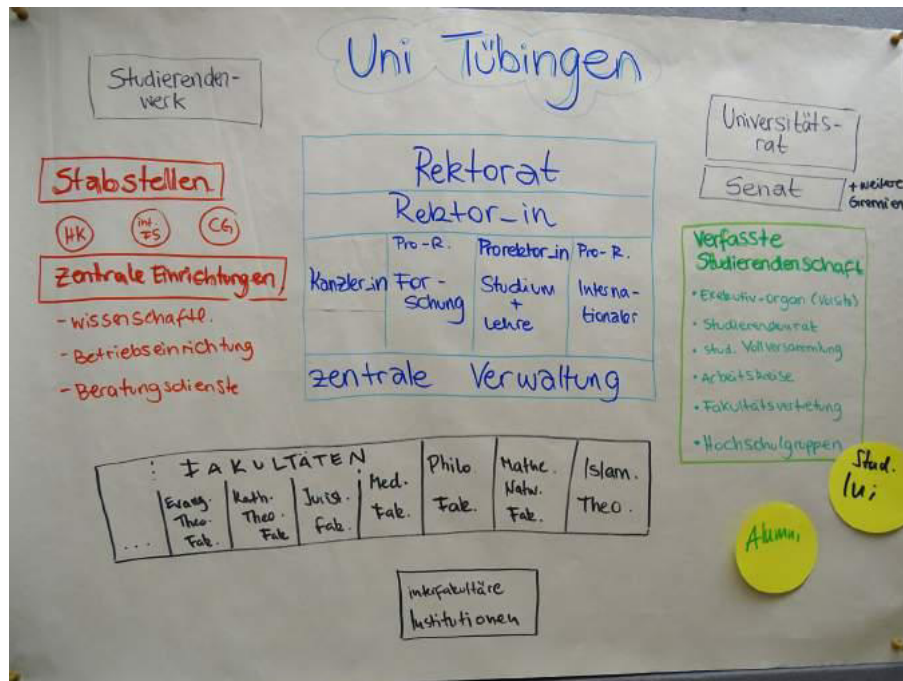 Uni Tübingen
Studierenden-
werk
Universitäts-
rat
Senat
+ weitere
Gremien
Stabstellen
HK
int.
FS
CG
Zentrale Einrichtungen
- wissenschaftl.
- Betriebseinrichtung
- Beratungsdienste
Rektorat
Rektor_in
Kanzler_in
Pro-R.
For-
schung
Prorektor_in
Studium
+
Lehre
Pro-R.
Interna-
tionales
zentrale Verwaltung
Verfasste
Studierendenschaft
• Exekutiv-organ (Vorsitz)
• Studierendenrat
• Stud. Vollversammlung
• Arbeitskreise
• Fakultätsvertretung
• Hochschulgruppen
FAKULTÄTEN
...
Evang.
Theo.
Fak.
Kath.
Theo.
Fak
Jurist.
Fak.
Med.
Fak.
Philo
Fak.
Mathe.
Natw.
Fak.
Islam.
Theo.
Stud.
Alumni
interfakultäre
Institutionen